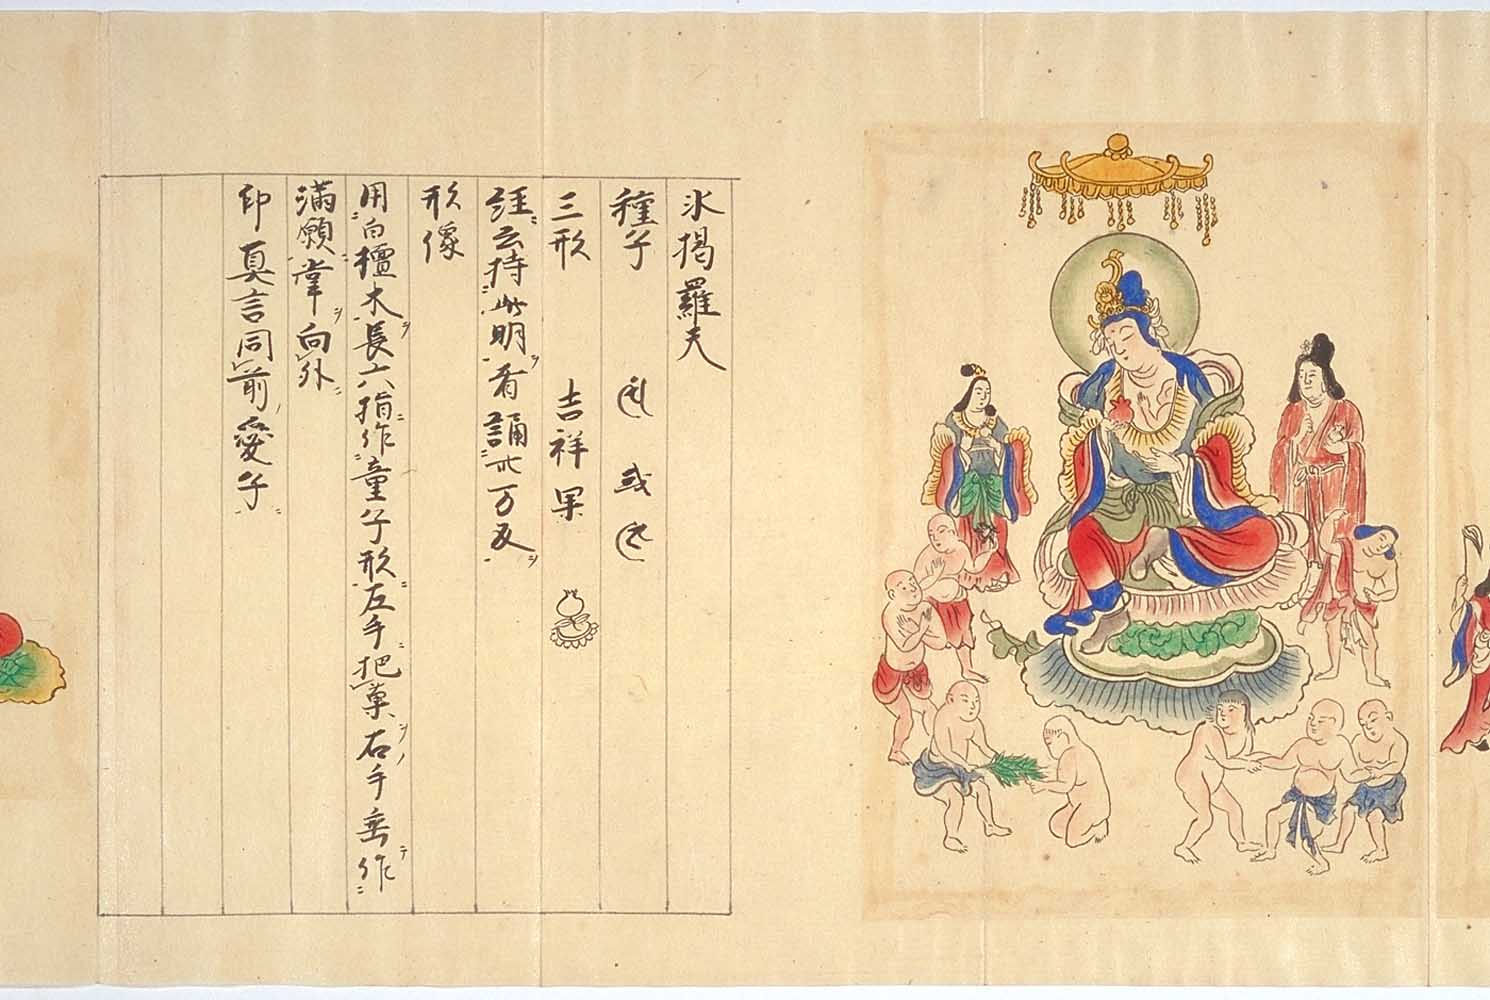 氷掲羅天
種子 或
三形 吉祥果
経云持此明者誦廿万反
形像
用白檀木長六指作童子形左手把菓右手垂作
満願掌向外
印真言同前愛子